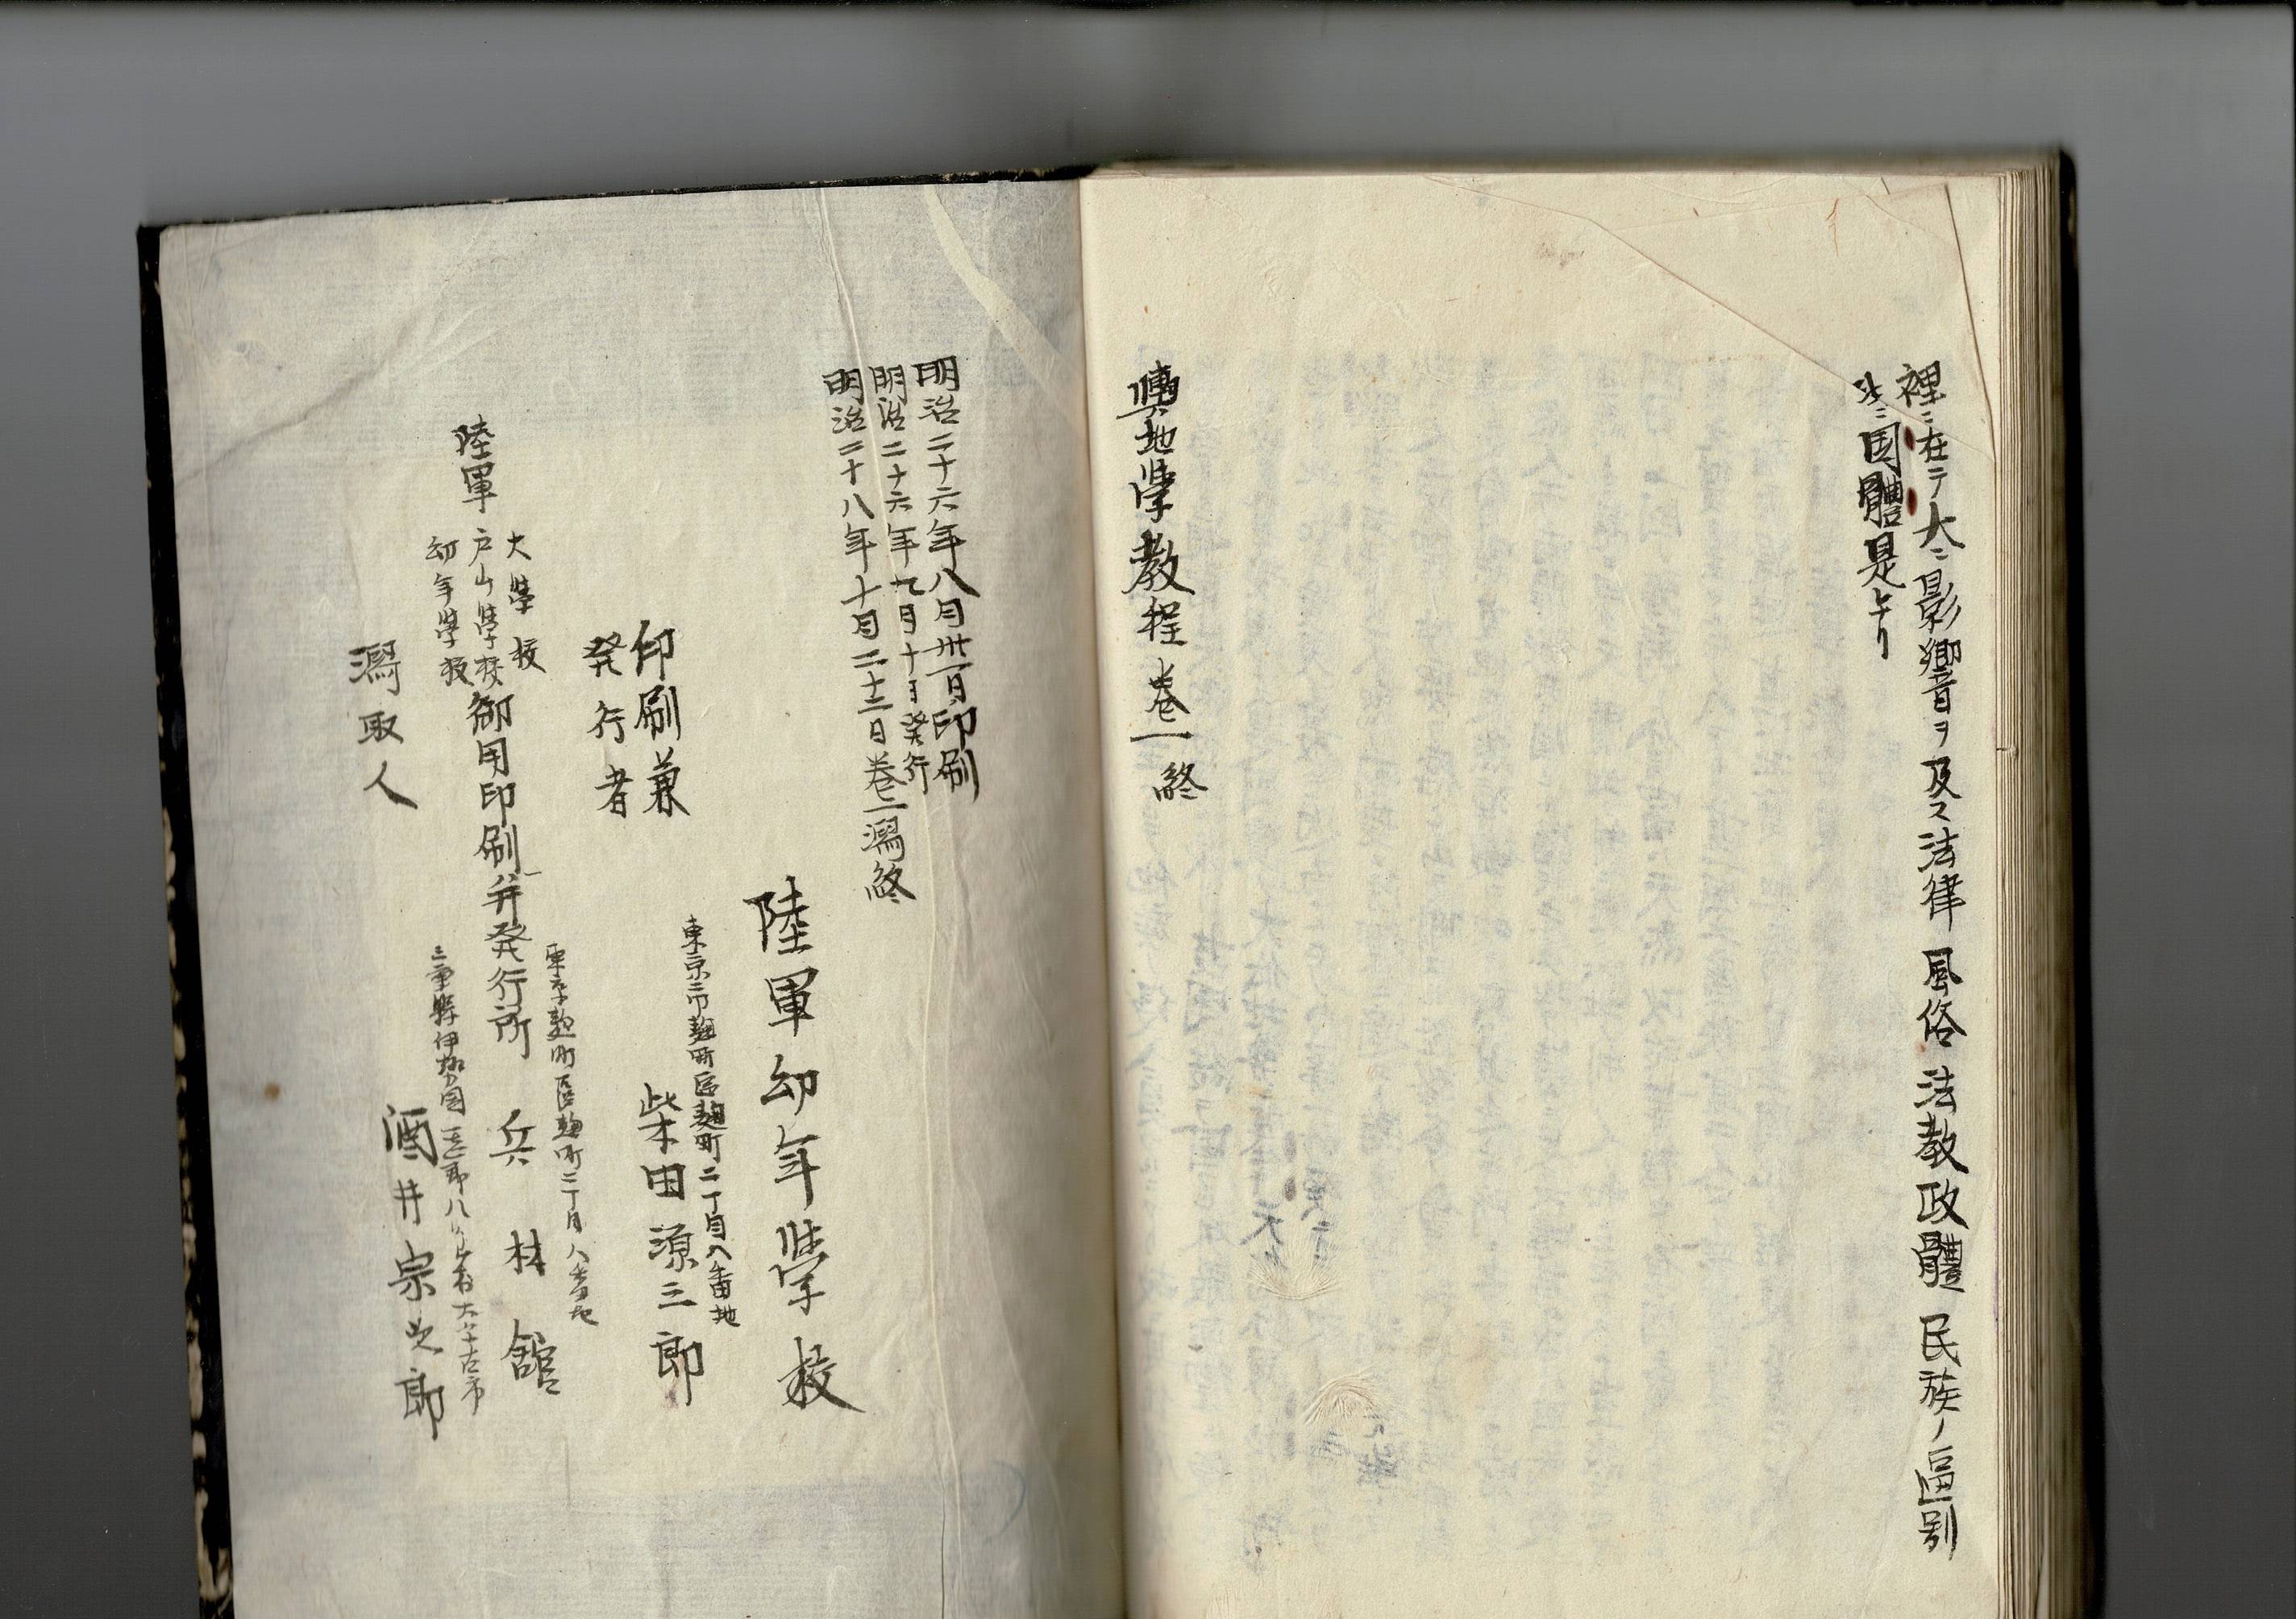 裡ニ在テ大ニ影響ヲ及ス法律 風俗 法教 政體 民族ノ區別
及ニ国體是ナリ
輿地学教程 巻一 終
明治二十六年八月卅一日印刷
明治二十六年九月十日発行
明治二十八年十月二十三日巻一冩終
陸軍幼年学校
東京市麹町區麹町二丁目八番地
印刷兼
発行者
柴田源三郎
大学校
陸軍 戸山学校 御用印刷并発行所
幼年学校
東京麹町區麹町二丁目八番地
兵林館
冩取人
三重縣伊勢国
大字古市
酒井宗次郎